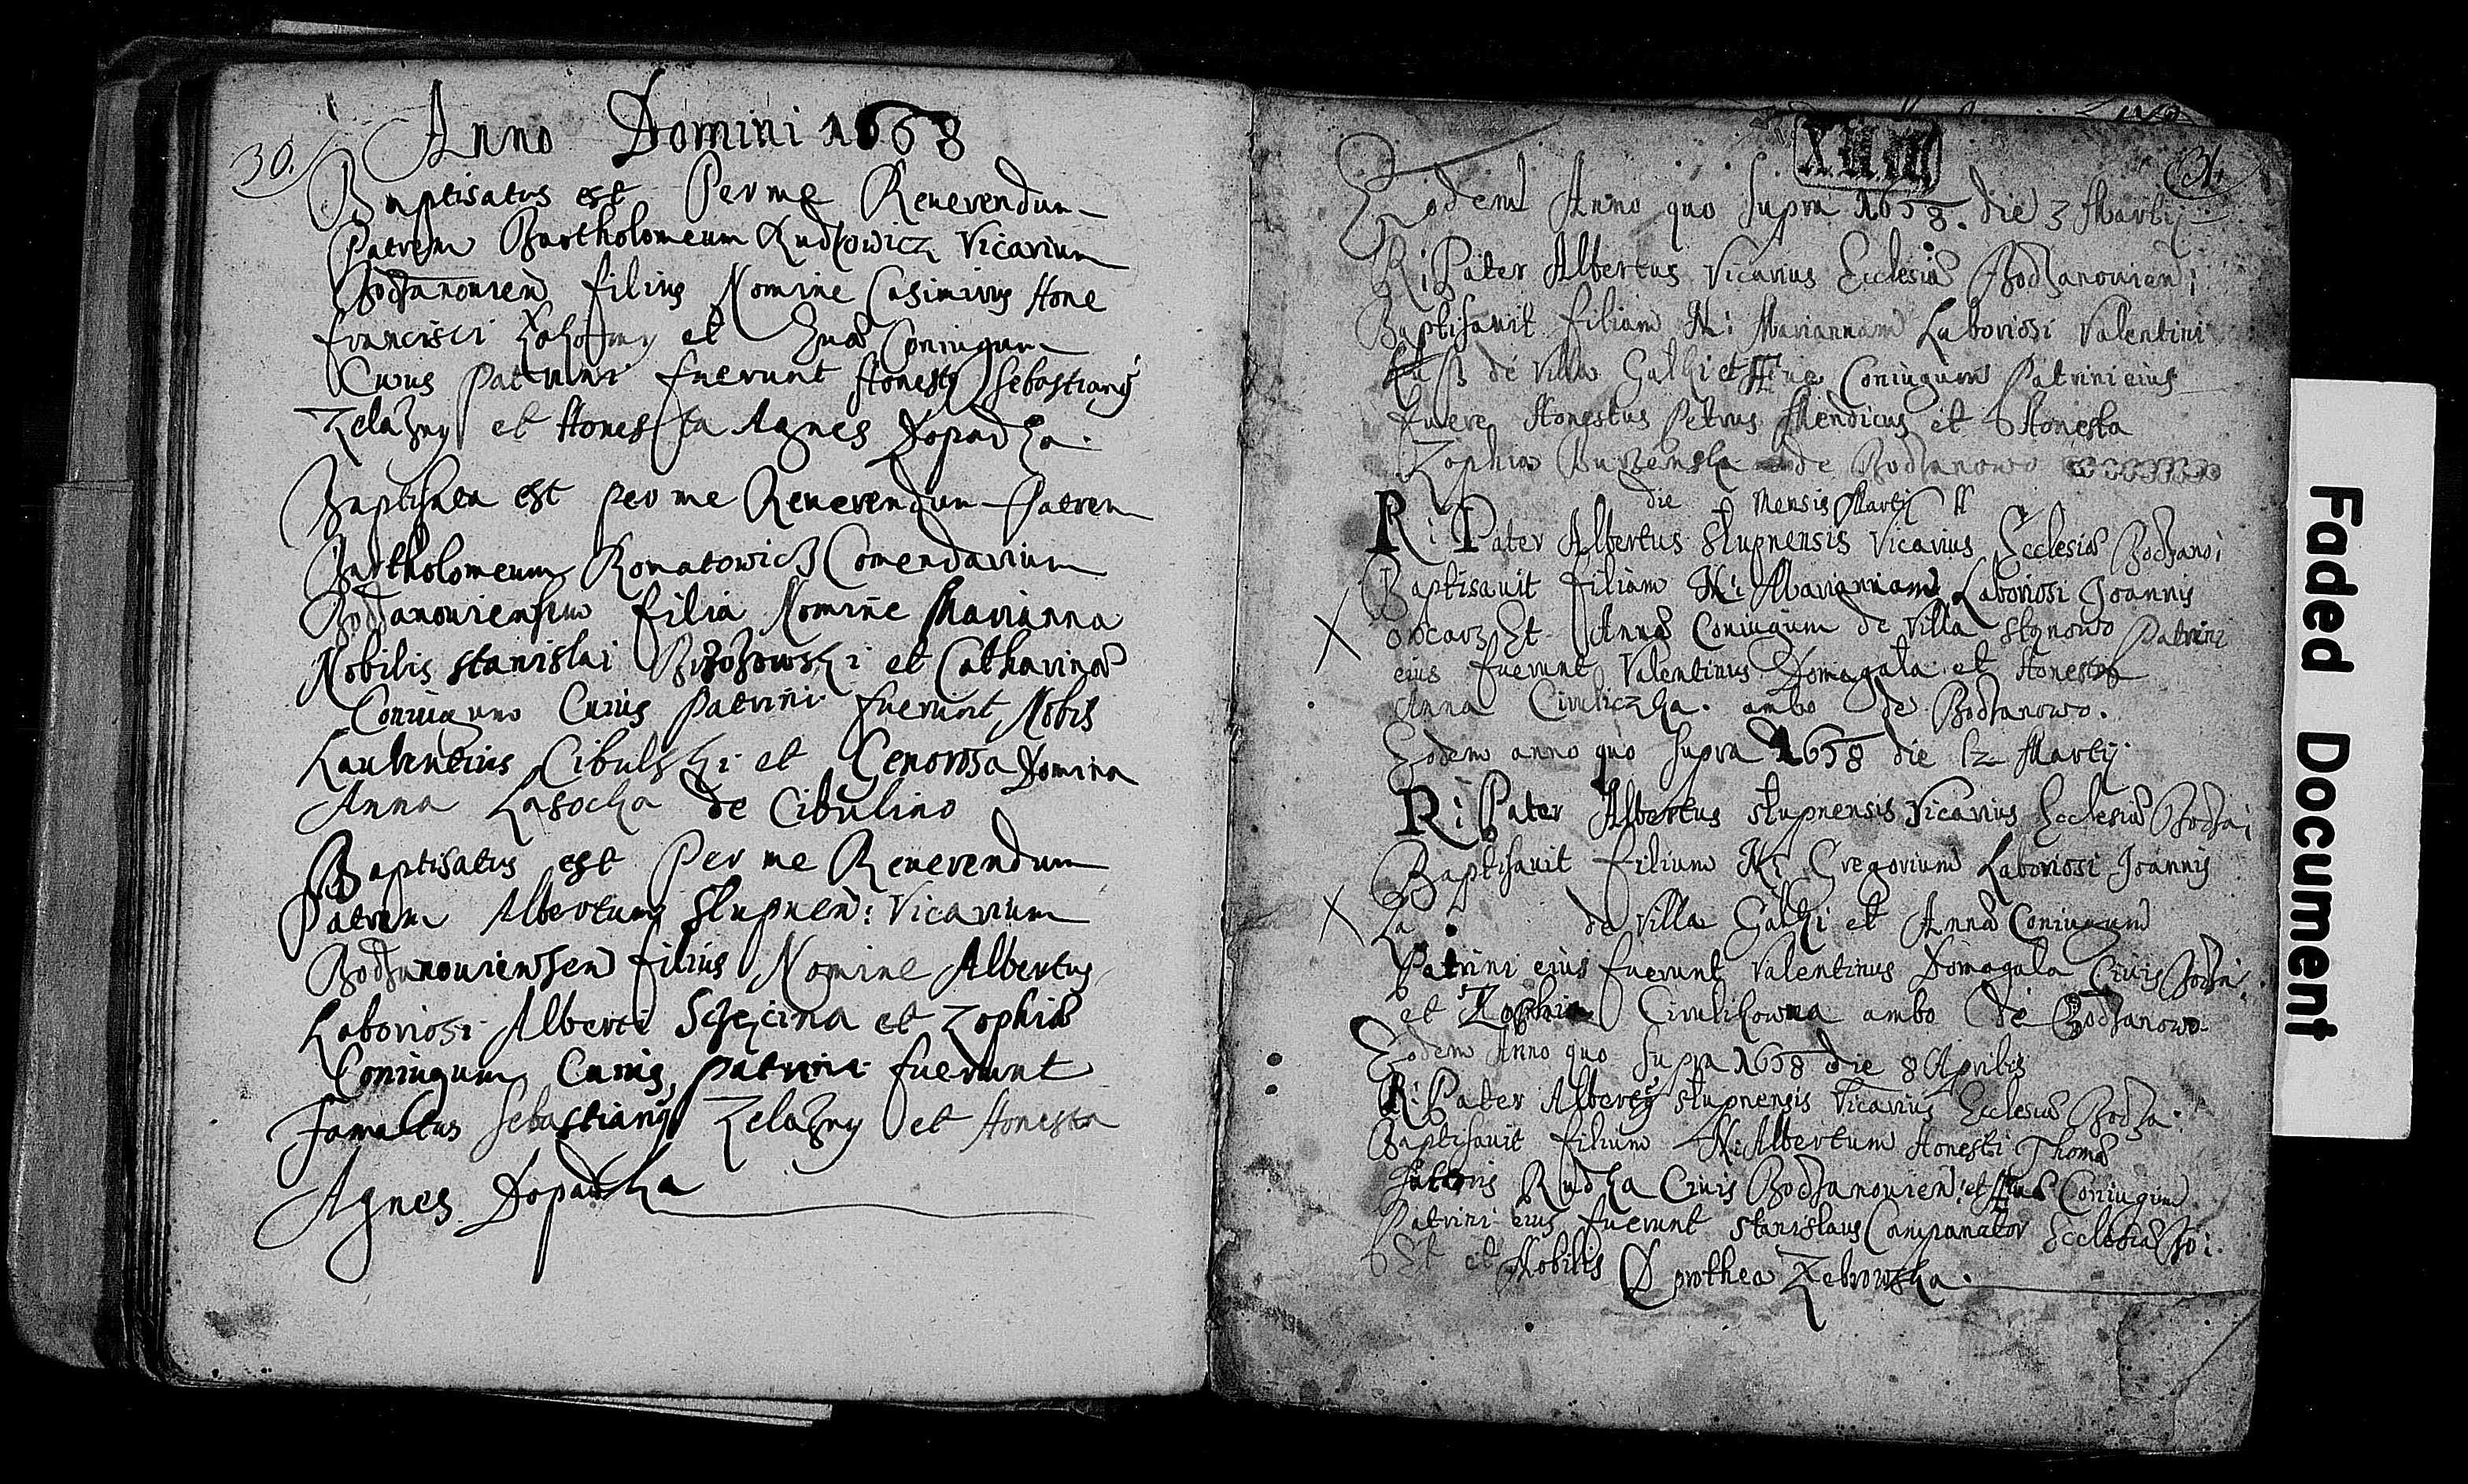 30.
Anno Domini 1668
Baptisatus est Per me Reuerendum
Patrem Bartholomeum Rudkowicz Vicarium
Bodzanouien filius Nomine Casimirus Hone
francisci et Euæ Coniugum
Cuius Patrini fuerunt Honesty Sebastiany
Zelazny et Honesta Agnes Dopadka
Baptisata est per me Reuerendum Patrem
Bartholomeum Romatowicz Comendarium
Bodzanouiensem filia Nomine Marianna
Nobilis Stanislai Brzozowski et Catharinæ
Coniugum Cuius Patrini fuerunt Nobis
Laurentius Cibulski et Generosa Domina
Anna Lasocka de Cibulino
Baptisatus est Per me Reuerendum
Patrem Albertum Slupnen: Vicarium
Bodzanouiensem filius Nomine Albertus
Laboriosi Alberti et Zophiæ
Coniugum Cuius patrini fuerunt
Famatus Sebastiany Zelazny et Honesta
Agnes Dopadka
Eodem Anno quo supra 1658. die 3 Martij
R: Pater Albertus Vicarius Ecclesiæ Bodzanouien:
Baptisauit filiam N: Mariannam Laboriosi Valentini
de Villa Galki et Coniugum Patrini eius
fuere Honestus Petrus Mendicus et Honesta
Zophia de Bodzanowo
die Mensis Martij
R: Pater Albertus Slupnensis Vicarius Ecclesiæ Bodzano:
Baptisauit filiam N: Mariannam Laboriosi Joannis
Owcarz Et Annæ Coniugum de Villa Patrini
eius fuerunt Valentinus Domagala et Honesta
Anna Ciuliczka. ambo de Bodzanowo.
Eodem anno quo supra 1658 die 12 Martij
R: Pater Albertus Slupnensis Vicarius Ecclesiæ Bodza:
Baptisauit filium N: Gregorium Laboriosi Joannis
La de Villa Galki et Annæ Coniugum
Patrini eius fuerunt Valentinus Domagala Ciuis Bodza:
et Zophia Ciulikowna ambo de Bodzanowo.
Eodem Anno quo supra 1658 die 8 Aprilis
R: Pater Alberty Slupnensis Vicarius Ecclesiæ Bodza:
Baptisauit filium N: Albertum Honesti Thomæ
Sutoris Rudka Ciuis Bodzanouien: et Coniugum
Patrini eius fuerunt Stanislaus Campanator Ecclesiæ Bo:
Et et Nobilis Dorothea Zebrowska.
Faded Document